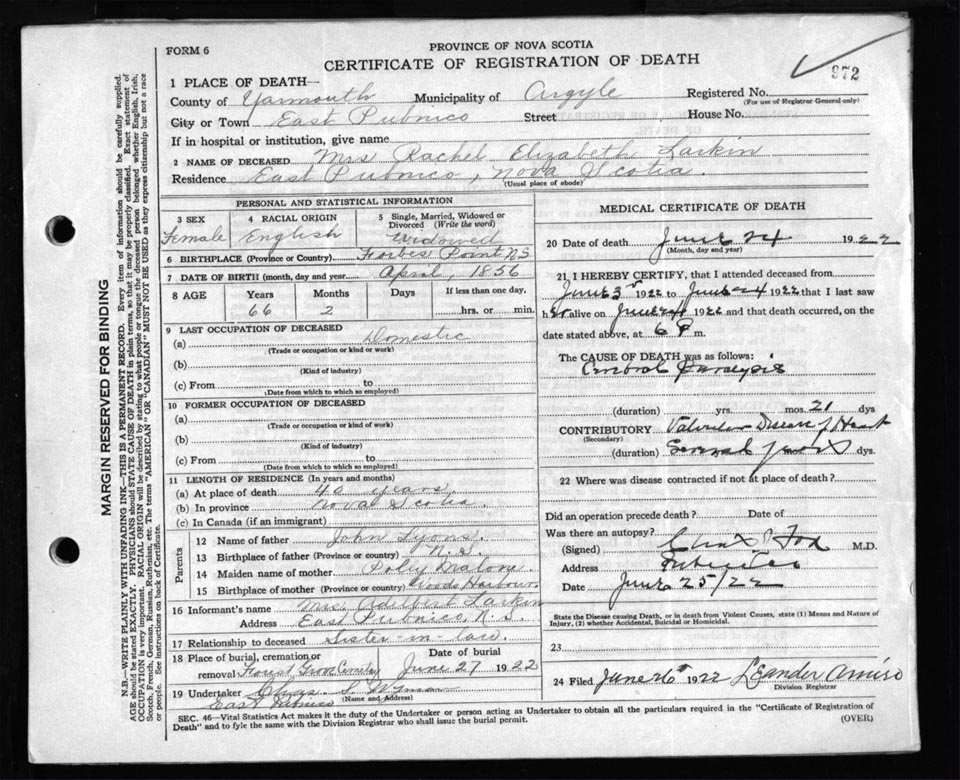 FORM 6
PROVINCE OF NOVA SCOTIA
CERTIFICATE OF REGISTRATION OF DEATH
972
1 PLACE OF DEATH—
County of Yarmouth Municipality of Argyle Registered No.
(For use of Registrar General only)
City or Town East Pubnico Street House No.
If in hospital or institution, give name
2 NAME OF DECEASED Mrs Rachel Elizabeth Larkin
Residence East Pubnico, Nova Scotia.
(Usual place of abode)
PERSONAL AND STATISTICAL INFORMATION
3 SEX Female
4 RACIAL ORIGIN English
5 Single, Married, Widowed or Divorced (Write the word) Widowed
6 BIRTHPLACE (Province or Country) Forbes Point N.S.
7 DATE OF BIRTH (month, day and year) April, 1856
8 AGE Years Months Days If less than one day,
66 2 hrs. or min.
9 LAST OCCUPATION OF DECEASED
(a) Domestic
(Trade or occupation or kind or work)
(b)
(Kind of industry)
(c) From to
(Date from which to which so employed)
10 FORMER OCCUPATION OF DECEASED
(a)
(Trade or occupation or kind or work)
(b)
(Kind of industry)
(c) From to
(Date from which to which so employed)
11 LENGTH OF RESIDENCE (In years and months)
(a) At place of death 40 years.
(b) In province Nova Scotia
(c) In Canada (if an immigrant)
Parents
12 Name of father John Lyons.
13 Birthplace of father (Province or country) N.S.
14 Maiden name of mother Polly Malone
15 Birthplace of mother (Province or country) Woods Harbour.
16 Informant's name Mrs. Adelbert Larkin
Address East Pubnico, N.S.
17 Relationship to deceased Sister-in-law.
18 Place of burial, cremation or removal Date of burial
June 27 1922
19 Undertaker Chas. S.
(Name and Address)
East Pubnico
MEDICAL CERTIFICATE OF DEATH
20 Date of death June 24 1922
(Month, day and year)
21 I HEREBY CERTIFY, that I attended deceased from
June 3rd 1922 to June 24 1922 that I last saw
her alive on June 24 1922 and that death occurred, on the
date stated above, at 6 P m.
The CAUSE OF DEATH was as follows:
Cerebral Paralysis
(duration) yrs. mos. 21 dys
CONTRIBUTORY Valvular Disease of Heart
(Secondary)
(duration) Several years dys.
22 Where was disease contracted if not at place of death?
Did an operation precede death? Date of
Was there an autopsy?
(Signed) Fox M.D.
Address Pubnico
Date June 25/22
State the Disease causing Death, or in death from Violent Causes, state (1) Means and Nature of
Injury, (2) whether Accidental, Suicidal or Homicidal.
23
24 Filed June 26th 1922 Leander Amiro
Division Registrar
SEC. 46—Vital Statistics Act makes it the duty of the Undertaker or person acting as Undertaker to obtain all the particulars required in the "Certificate of Registration of
Death" and to fyle the same with the Division Registrar who shall issue the burial permit.
(OVER)
MARGIN RESERVED FOR BINDING
N.B.—WRITE PLAINLY WITH UNFADING INK—THIS IS A PERMANENT RECORD. Every item of information should be carefully supplied.
AGE should be stated EXACTLY. PHYSICIANS should STATE CAUSE OF DEATH in plain terms, so that it may be properly classified. Exact statement of
OCCUPATION is very important. RACIAL ORIGIN will be described by stating to what people or tongue the deceased person belonged whether English, Irish,
Scotch, French, German, Russian, Ruthenian, etc. The terms "AMERICAN" OR "CANADIAN" MUST NOT BE USED as they express citizenship but not a race
or people. See instructions on back of Certificate.